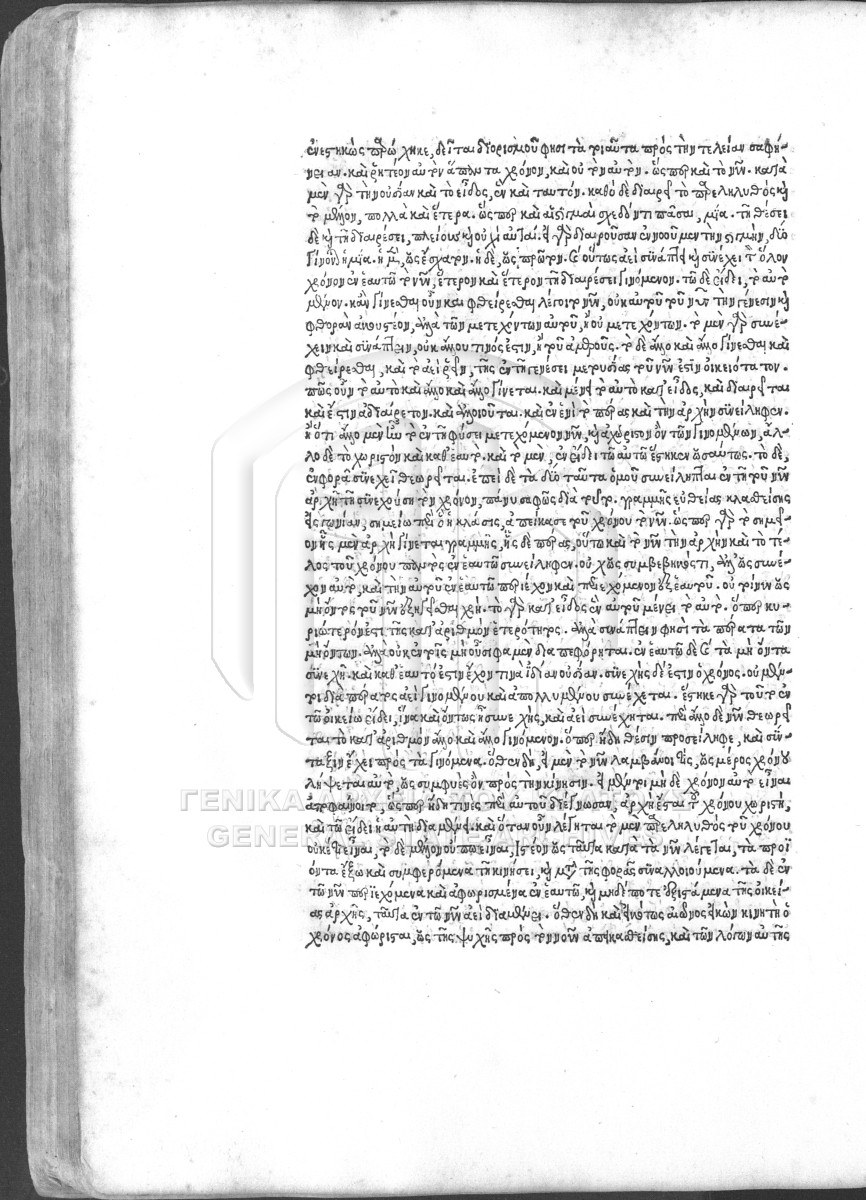 ἐνεστηκὼς παρώχηκε, δεῖται διορισμοῦ φησὶ τὰ τοιαῦτα πρὸς τὴν τελείαν σαφή-
νειαν. καὶ ῥητέον αὐτὸν ἅπαντα χρόνον, καὶ οὐ τὸν αὐτόν. ὥσπερ καὶ τὸ νῦν. κατὰ
μὲν γὰρ τὴν οὐσίαν καὶ τὸ εἶδος, ἓν καὶ ταυτόν. καθὸ δὲ διαιρεῖ τὸ παρεληλυθὸς καὶ
τὸ μέλλον, πολλὰ καὶ ἕτερα. ὥσπερ καὶ αἱ στιγμαὶ σχεδόν τι πᾶσαι, μία. τῇ θέσει
δὲ καὶ τῇ διαιρέσει, πλείους καὶ οὐχὶ αὗται. εἰ γὰρ διαιροῦσαν ἐννοοῦμεν τὴν στιγμὴν, δύο
γίνονται ἡ μία. ἡ μὲν, ὡς ἐσχάτη. ἡ δὲ, ὡς πρώτη. καὶ οὕτως ἀεὶ συνάπτει καὶ συνέχει τὸν ὅλον
χρόνον ἐν ἑαυτῷ τὸ νῦν, ἕτερον καὶ ἕτερον τῇ διαιρέσει γινόμενον. τῷ δὲ εἴδει, τὸ αὐτὸ
μένον. κἂν γίνεσθαι οὖν καὶ φθείρεσθαι λέγοιτο νῦν, οὐκ αὐτοῦ τοῦ νῦν τὴν γένεσιν καὶ
φθορὰν ἀκουστέον, ἀλλὰ τῶν μετεχόντων αὐτοῦ, ἢ οὐ μετεχόντων. τὸ μὲν γὰρ συνέ-
χειν καὶ συνάπτειν, οὐκ ἄλλου τινός ἐστιν, ἢ τοῦ ἀμεροῦς. τὸ δὲ ἄλλο καὶ ἄλλο γίνεσθαι καὶ
φθείρεσθαι, καὶ τὸ ἀεὶ ῥεῖν, τῆς ἐν τῇ γενέσει μετουσίας τοῦ νῦν ἐστὶν οἰκειότατον.
πῶς οὖν τὸ αὐτὸ καὶ ἄλλο καὶ ἄλλο γίνεται. καὶ μένει τὸ αὐτὸ κατ' εἶδος, καὶ διαιρεῖται
καὶ ἔστιν ἀδιαίρετον. καὶ ἀλλοιοῦται. καὶ ἐν ἑνὶ τὸ πέρας καὶ τὴν ἀρχὴν συνείληφεν.
ἢ ὅτι ἄλλο μὲν ἦν τὸ ἐν τῇ φύσει μετεχόμενον νῦν, καὶ ἀχώριστον ὂν τῶν γινομένων, ἄλ-
λο δὲ τὸ χωριστὸν καὶ καθ' ἑαυτό. καὶ τὸ μὲν, ἐν εἴδει τῷ αὐτῷ ἕστηκεν ὡσαύτως. τὸ δὲ,
ἐν φορᾷ συνεχεῖ θεωρεῖται. ἐπεὶ δὲ τὰ δύο ταῦτα ὁμοῦ συνείληπται ἐν τῇ τοῦ νῦν
ἀρχῇ τῇ συνεχούσῃ τὸν χρόνον, πάνυ σαφῶς διὰ τοῦτο γραμμῆς εὐθείας κλασθείσης
εἰς γωνίαν, σημείῳ περὶ ὃ ἡ κλάσις, ἀπείκασε τοῦ χρόνου τὸ νῦν. ὥσπερ γὰρ τὸ σημεῖ-
ον ἧς μὲν ἀρχὴ γίνεται γραμμῆς, ἧς δὲ πέρας, οὕτω καὶ τὸ νῦν τὴν ἀρχὴν καὶ τὸ τέ-
λος τοῦ χρόνου παντὸς ἐν ἑαυτῷ συνείληφεν. οὐχ ὡς συμβεβηκός τι, ἀλλ' ὡς συνέ-
χον αὐτὸ, καὶ τὴν αὐτοῦ ἐν ἑαυτῷ περιέχον καὶ περιεχόμενον ἐξ ἑαυτοῦ. οὔτοι νῦν ὡς
μὴ ὄντος τοῦ νῦν ἐξηγεῖσθαι χρή. τὸ γὰρ κατ' εἶδος ἐν αὐτοῦ μένει τὸ αὐτό. ὅπερ κυ-
ριώτερόν ἐστι τῆς κατ' ἀριθμὸν ἑτερότητος. ἀλλὰ συνάπτειν φησὶ τὰ πέρατα τῶν
μὴ ὄντων. ἀλλὰ οὐκ ἐν τοῖς μὴ οὖσι φαμὲν διαπεφόρηται. ἐν ἑαυτῷ δὲ καὶ τὰ μὴ ὄντα
συνεχῆ. καὶ καθ' ἑαυτό ἐστιν ἔχον τινὰ ἰδίαν οὐσίαν. συνεχὴς δέ ἐστιν ὁ χρόνος. οὐ μέν-
τοι διὰ πέρατος ἀεὶ γινομένου καὶ ἀπολλυμένου συνέχεται. ἕστηκε γὰρ τοῦτο ἐν
τῷ οἰκείῳ εἴδει, ἵνα καὶ ὄντως ᾖ συνεχὴς, καὶ ἀεὶ συνέχηται. περὶ ἄλλο δὲ νῦν θεωρεῖ-
ται τὸ κατ' ἀριθμὸν ἄλλο καὶ ἄλλο γινόμενον. ὅπερ ἤδη θέσιν προσείληφε, καὶ σύν-
ταξιν ἔχει πρὸς τὰ γινόμενα. ὅθεν δὴ, εἰ μὲν τὸ νῦν λαμβάνοι τις, ὡς μέρος χρόνου
λήψεται αὐτὸ, ὡς συμφυὲς ὂν πρὸς τὴν κίνησιν. εἰ μέντοι μηδὲ χρόνον αὐτὸ εἶναι
ἀποφαίνοιτο, ὥσπερ ἤδη τινὲς περὶ αὐτοῦ διέγνωσαν, ἀρχὴ ἔσται τοῦ χρόνου χωριστὴ,
καὶ τῷ εἴδει ἡ αὐτὴ διαμένει. καὶ ὅταν οὖν λέγηται τὸ μὲν παρεληλυθὸς τοῦ χρόνου
οὐκέτ' εἶναι, τὸ δὲ μέλλον οὔπω εἶναι, ἰστέον ὡς ταῦτα κατὰ τὸ νῦν λέγεται, τὰ προϊ
όντα ἔξω καὶ συμφερόμενα τῇ κινήσει, καὶ μετὰ τῆς φορᾶς συναλλοιούμενα. τὰ δὲ ἐν
τῷ νῦν περιεχόμενα καὶ ἀφωρισμένα ἐν ἑαυτῷ, καὶ μηδέποτε ἐξιστάμενα τῆς οἰκεί-
ας ἀρχῆς, ταῦτα ἐν τῷ νῦν ἀεὶ διαμένει. ὅθεν δὴ καὶ εἰκότως αἰῶνος εἰκὼν κινητὴ ὁ
χρόνος ἀφώρισται, ὡς τῆς ψυχῆς πρὸς τὸν νοῦν ἀπεικασθείσης, καὶ τῶν λόγων αὐτῆς